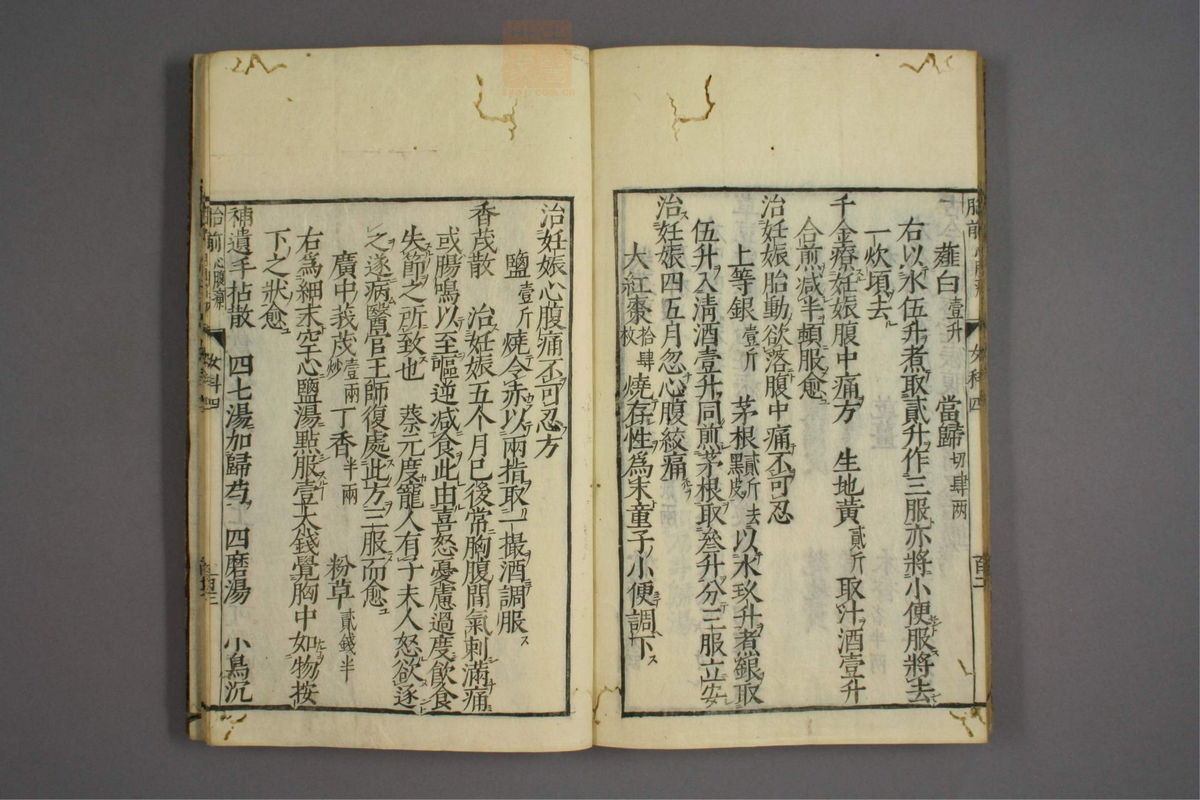 薤白壹升 當歸切肆两
右以水伍升煮取貳升作三服亦將小便服將去
一炊頃去
千金療妊娠腹中痛方 生地黄貳斤取汁酒壹升
合煎减半頓服愈
治妊娠胎動欲落腹中痛不可忍
上等銀壹斤 茅根貳斤去黑皮以水玖升煮銀取
伍升入清酒壹升同煎茅根取叄升分三服立安
治妊娠四五月忽心腹絞痛
大紅棗拾肆枚燒存性爲末童子小便調下
女科四
百二
治妊娠心腹痛不可忍方
鹽壹斤燒令赤以兩指取一撮酒調服
香茂散 治妊娠五个月已後常胸腹間氣刺滿痛
或腸鳴以至嘔逆减食此由喜怒憂慮過度飲食
失節之所致也 蔡元度寵人有子夫人怒欲逐
之遂病醫官王師復處此方三服而愈
廣中莪茂壹兩炒 丁香半兩 粉草貳錢半
右爲細末空心鹽湯點服壹大錢覺胸中如物按
下之狀愈
補遺手拈散 四七湯加歸芎 四磨湯 小烏沉
胎前心腹痛
女科四